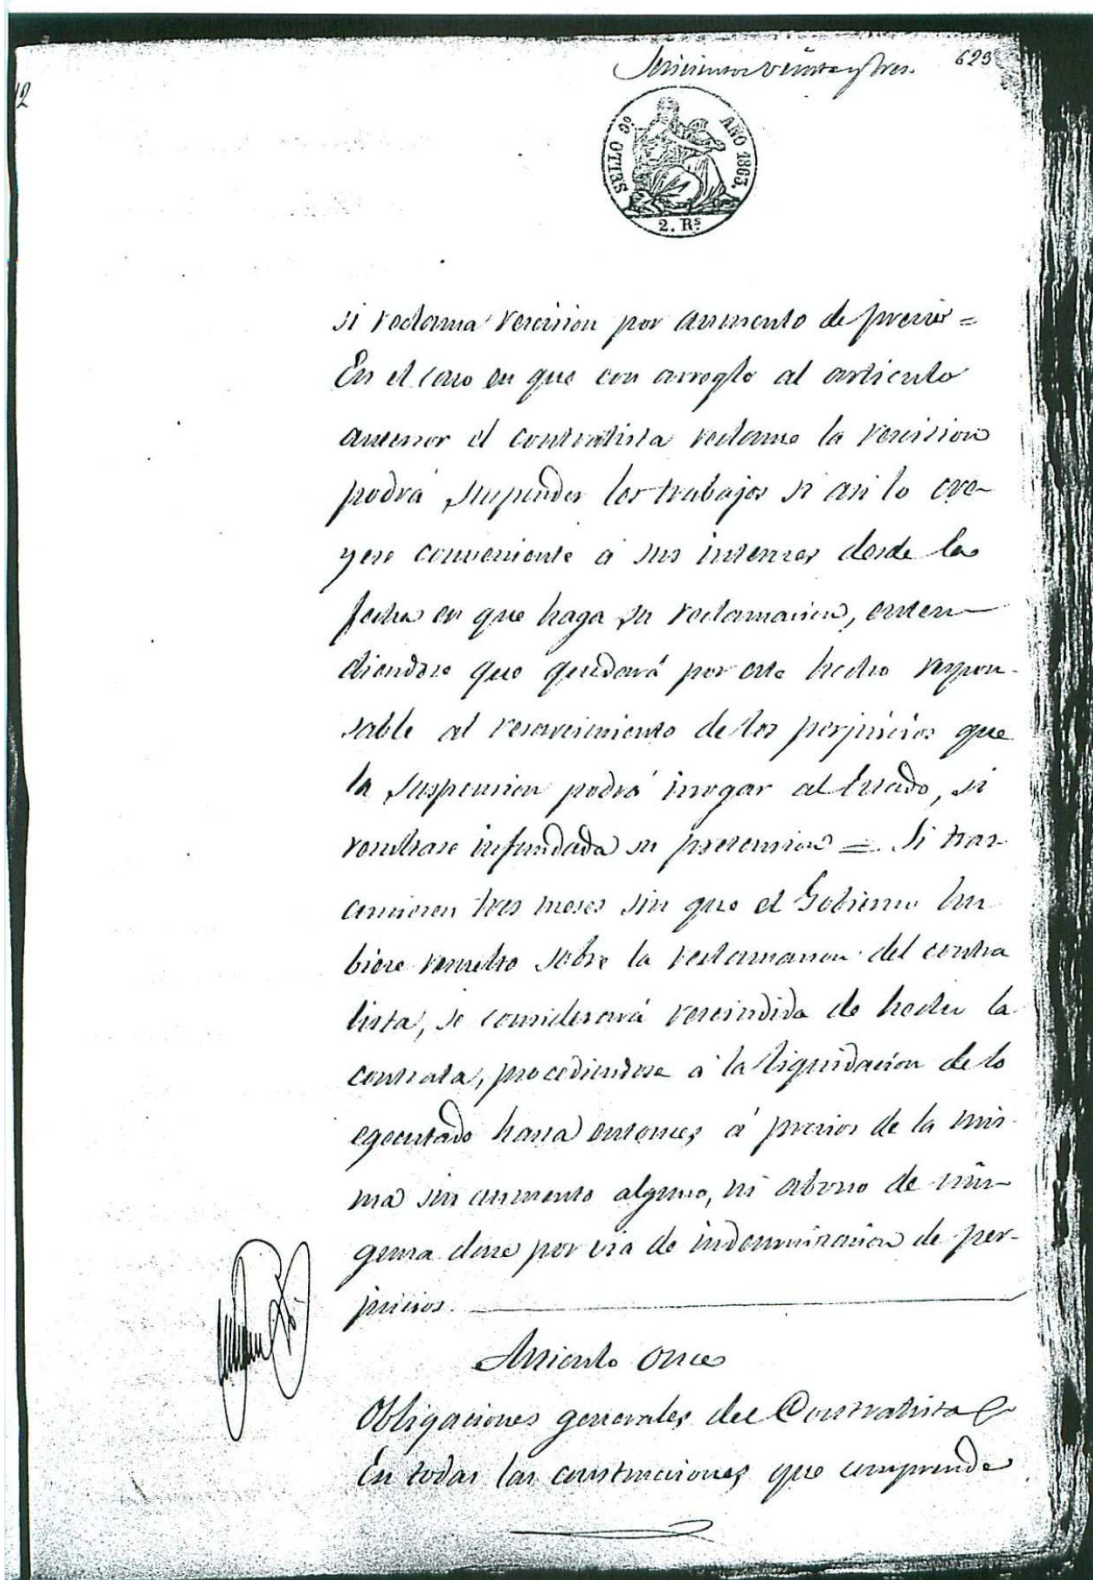 12
Seiscientos veinte y tres. 623
SELLO 9º AÑO 1863.
2. Rs
si reclama rescision por aumento de precios =
En el caso en que con arreglo al articulo
anterior el contratista reclame la rescision
podrá suspender los trabajos si asi lo cre-
yese conveniente á sus intereses desde la
fecha en que haga su reclamacion, enten-
diendose que quedará por este hecho respon-
sable al resarcimiento de los perjuicios que
la suspension podrá irrogar al Estado, si
resultase infundada su pretension =. Si tras-
curriesen tres meses sin que el Gobierno hu
biese resuelto sobre la reclamacion del contra
tista, se considerará rescindida de hecho la
contrata, procediendose á la liquidacion de lo
egecutado hasta entonces á precios de la mis-
ma sin aumento alguno, ni abono de nin-
guna clase por via de indemnizacion de per-
juicios.
Articulo Once
Obligaciones generales del Contratista
En todas las construcciones que comprende